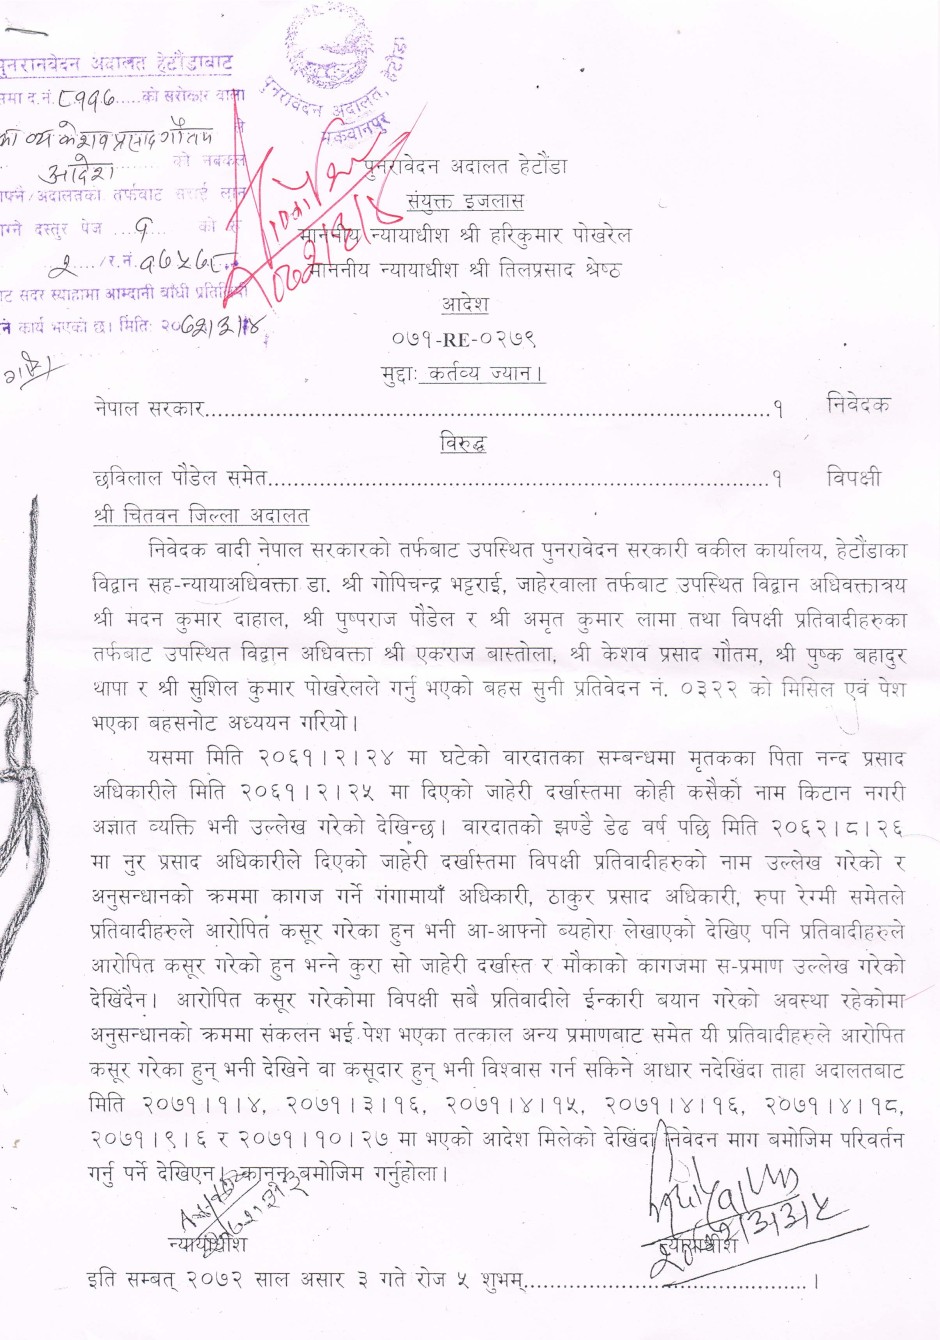 पुनरावेदन अदालत, हेटौंडा
मकवानपुर
पुनरावेदन अदालत हेटौंडाबाट
को सरोकार वाला
केशव प्रसाद गौतम
आदेश को नक्कल
अदालतको तर्फबाट
दस्तुर पेज ....१ को रु
२ ..../र.नं. १७५७८
बाट सदर स्याहामा आम्दानी बाँधी
कार्य भएको छ। मितिः २०७२।३।४
पुनरावेदन अदालत हेटौंडा
संयुक्त इजलास
माननीय न्यायाधीश श्री हरिकुमार पोखरेल
माननीय न्यायाधीश श्री तिलप्रसाद श्रेष्ठ
आदेश
०७१-RE-०२७९
मुद्दाः कर्तव्य ज्यान।
नेपाल सरकार..........................................................................१ निवेदक
विरुद्ध
छविलाल पौडेल समेत.................................................................१ विपक्षी
श्री चितवन जिल्ला अदालत
निवेदक वादी नेपाल सरकारको तर्फबाट उपस्थित पुनरावेदन सरकारी वकील कार्यालय, हेटौंडाका
विद्वान सह-न्यायाअधिवक्ता डा. श्री गोपिचन्द्र भट्टराई, जाहेरवाला तर्फबाट उपस्थित विद्वान अधिवक्तात्रय
श्री मदन कुमार दाहाल, श्री पुष्पराज पौडेल र श्री अमृत कुमार लामा तथा विपक्षी प्रतिवादीहरुका
तर्फबाट उपस्थित विद्वान अधिवक्ता श्री एकराज बास्तोला, श्री केशव प्रसाद गौतम, श्री पुष्क बहादुर
थापा र श्री सुशिल कुमार पोखरेलले गर्नु भएको बहस सुनी प्रतिवेदन नं. ०३२२ को मिसिल एवं पेश
भएका बहसनोट अध्ययन गरियो।
यसमा मिति २०६१।२।२४ मा घटेको वारदातका सम्बन्धमा मृतकका पिता नन्द प्रसाद
अधिकारीले मिति २०६१।२।२५ मा दिएको जाहेरी दर्खास्तमा कोही कसैको नाम किटान नगरी
अज्ञात व्यक्ति भनी उल्लेख गरेको देखिन्छ। वारदातको झण्डै डेढ वर्ष पछि मिति २०६२।८।२६
मा नुर प्रसाद अधिकारीले दिएको जाहेरी दर्खास्तमा विपक्षी प्रतिवादीहरुको नाम उल्लेख गरेको र
अनुसन्धानको क्रममा कागज गर्ने गंगामायाँ अधिकारी, ठाकुर प्रसाद अधिकारी, रुपा रेग्मी समेतले
प्रतिवादीहरुले आरोपित कसूर गरेका हुन भनी आ-आफ्नो ब्यहोरा लेखाएको देखिए पनि प्रतिवादीहरुले
आरोपित कसूर गरेको हुन भन्ने कुरा सो जाहेरी दर्खास्त र मौकाको कागजमा स-प्रमाण उल्लेख गरेको
देखिंदैन। आरोपित कसूर गरेकोमा विपक्षी सबै प्रतिवादीले ईन्कारी बयान गरेको अवस्था रहेकोमा
अनुसन्धानको क्रममा संकलन भई पेश भएका तत्काल अन्य प्रमाणबाट समेत यी प्रतिवादीहरुले आरोपित
कसूर गरेका हुन् भनी देखिने वा कसूदार हुन् भनी विश्वास गर्न सकिने आधार नदेखिंदा ताहा अदालतबाट
मिति २०७१।१।४, २०७१।३।१६, २०७१।४।१५, २०७१।४।१६, २०७१।४।१८,
२०७१।९।६ र २०७१।१०।२७ मा भएको आदेश मिलेको देखिंदा निवेदन माग बमोजिम परिवर्तन
गर्नु पर्ने देखिएन। कानून बमोजिम गर्नुहोला।
न्यायाधीश न्यायाधीश
इति सम्बत् २०७२ साल असार ३ गते रोज ५ शुभम्.....................................।